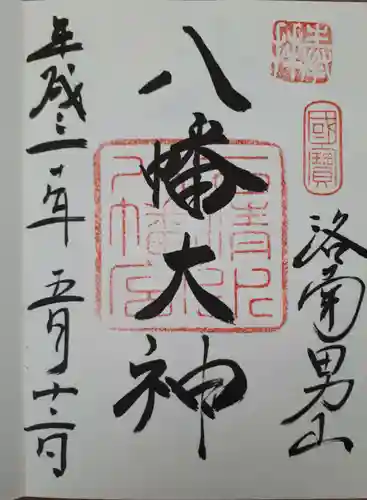 奉拝
國寶
洛南男山
八幡大神
石清水八幡宮
平成三十年五月十二日